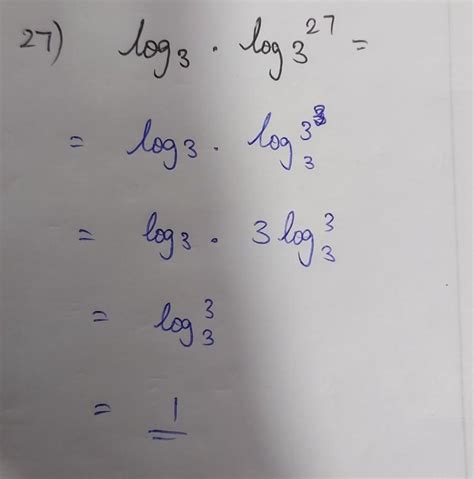 27) log₃ · log₃²⁷ =
= log₃ · log₃3³
= log₃ · 3 log₃³
= log₃³
= 1